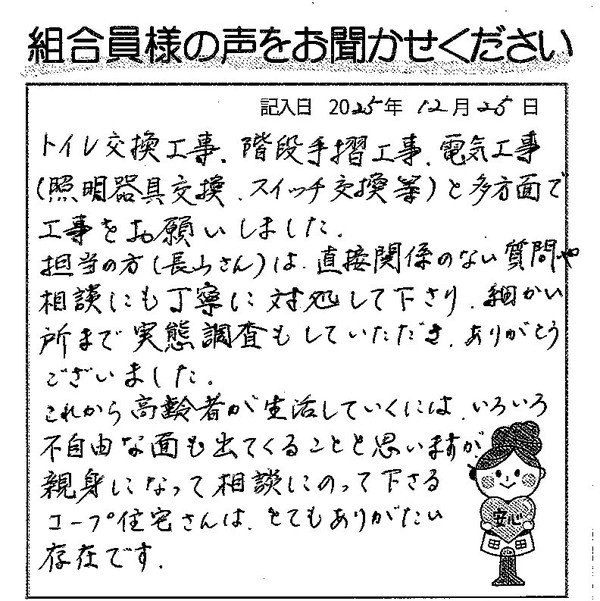 組合員様の声をお聞かせください
記入日 2025年 12月 25日
トイレ交換工事、階段手摺工事、電気工事
(照明器具交換、スイッチ交換等)と多方面で
工事をお願いしました。
担当の方(長山さん)は、直接関係のない質問や
相談にも丁寧に対処して下さり、細かい
所まで実態調査もしていただき、ありがとう
ございました。
これから高齢者が生活していくには、いろいろ
不自由な面も出てくることと思いますが
親身になって相談にのって下さる
コープ住宅さんは、とてもありがたい
存在です.
安心